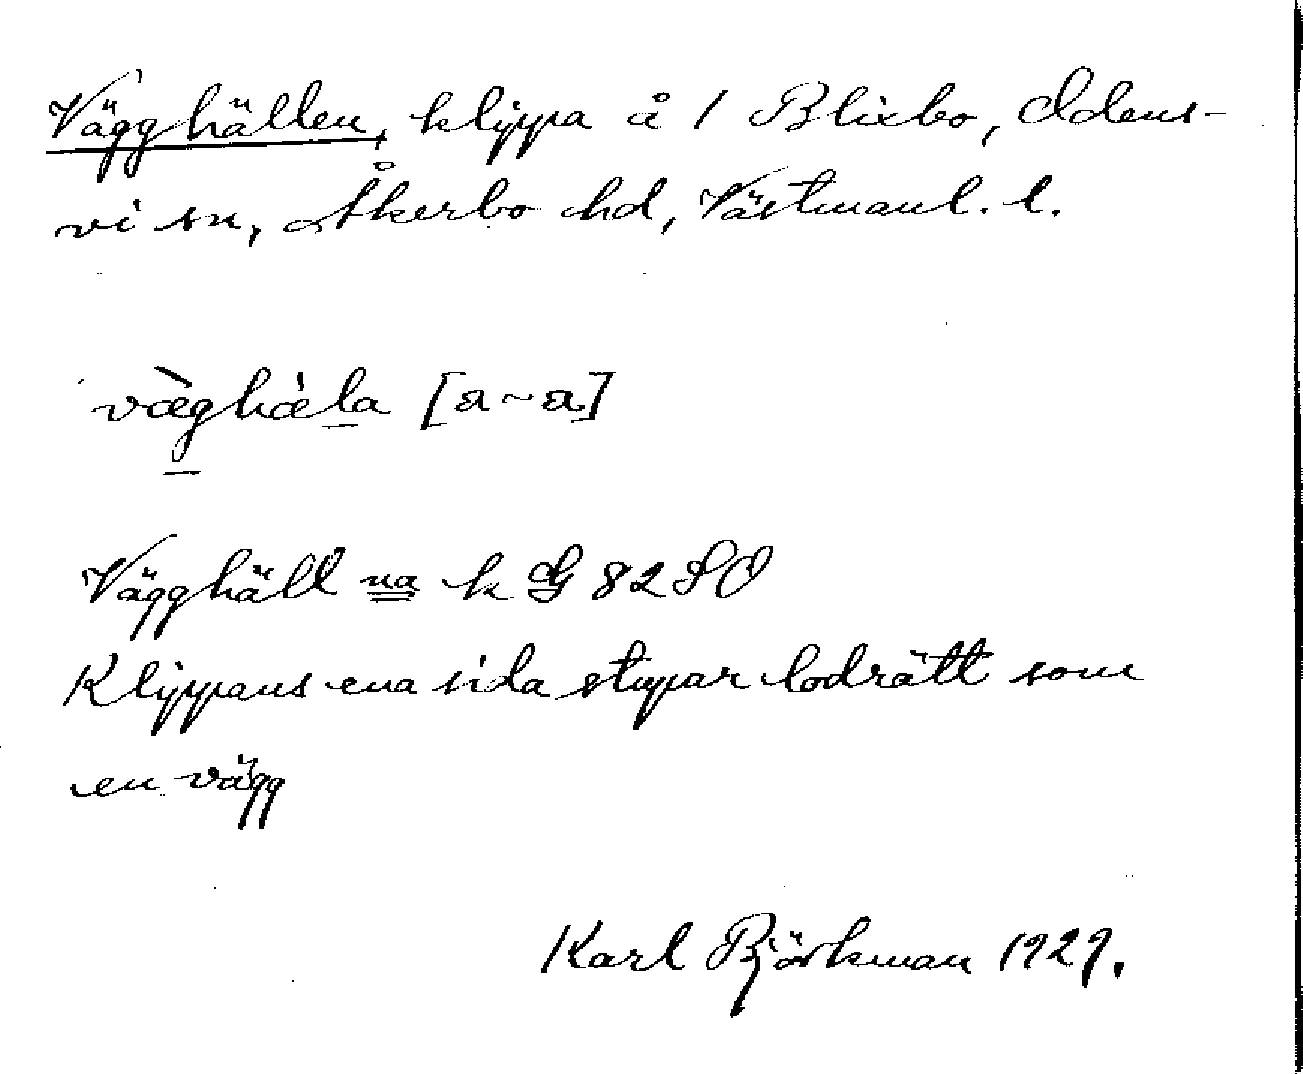 Vägghällen, klippa å 1 Blixbo, Odens-
vi sn, Åkerbo hd, Västmanl. l.
væ̀ghæ̀la [a~a]
Vägghäll na k G 82 SO
Klippans ena sida stupar lodrätt som
en vägg
Karl Björkman 1929.